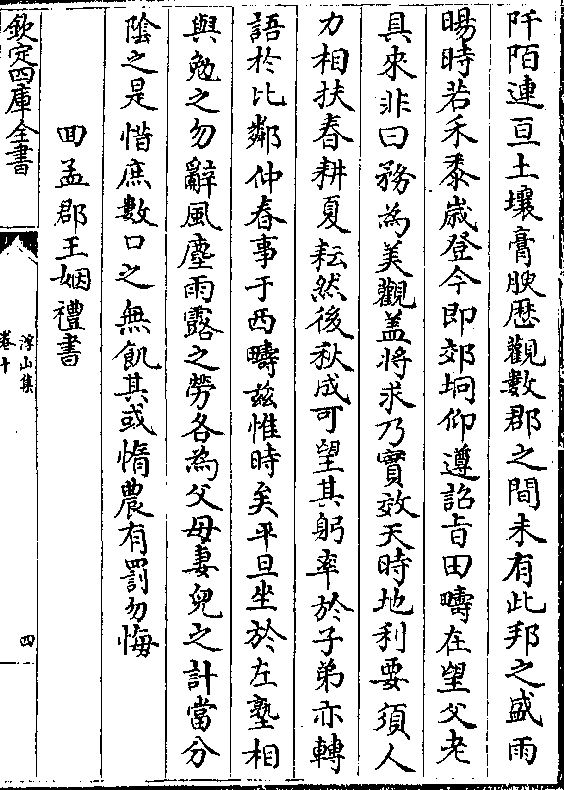 阡陌連亘土壤膏腴厯觀數郡之間未有此邦之盛雨
暘時若禾黍歲登今即郊坰仰遵詔㫖田疇在望父老
具來非曰務為美觀盖將求乃實效天時地利要須人
力相扶春耕夏耘然後秋成可望其躬率於子弟亦轉
語於比鄰仲春事于西疇兹惟時矣平旦坐於左塾相
與勉之勿辭風塵雨露之勞各為父母妻兒之計當分
隂之是惜庶數口之無飢其或惰農有罰勿悔
回孟郡王姻禮書
欽定四庫全書
浮山集
卷十
四